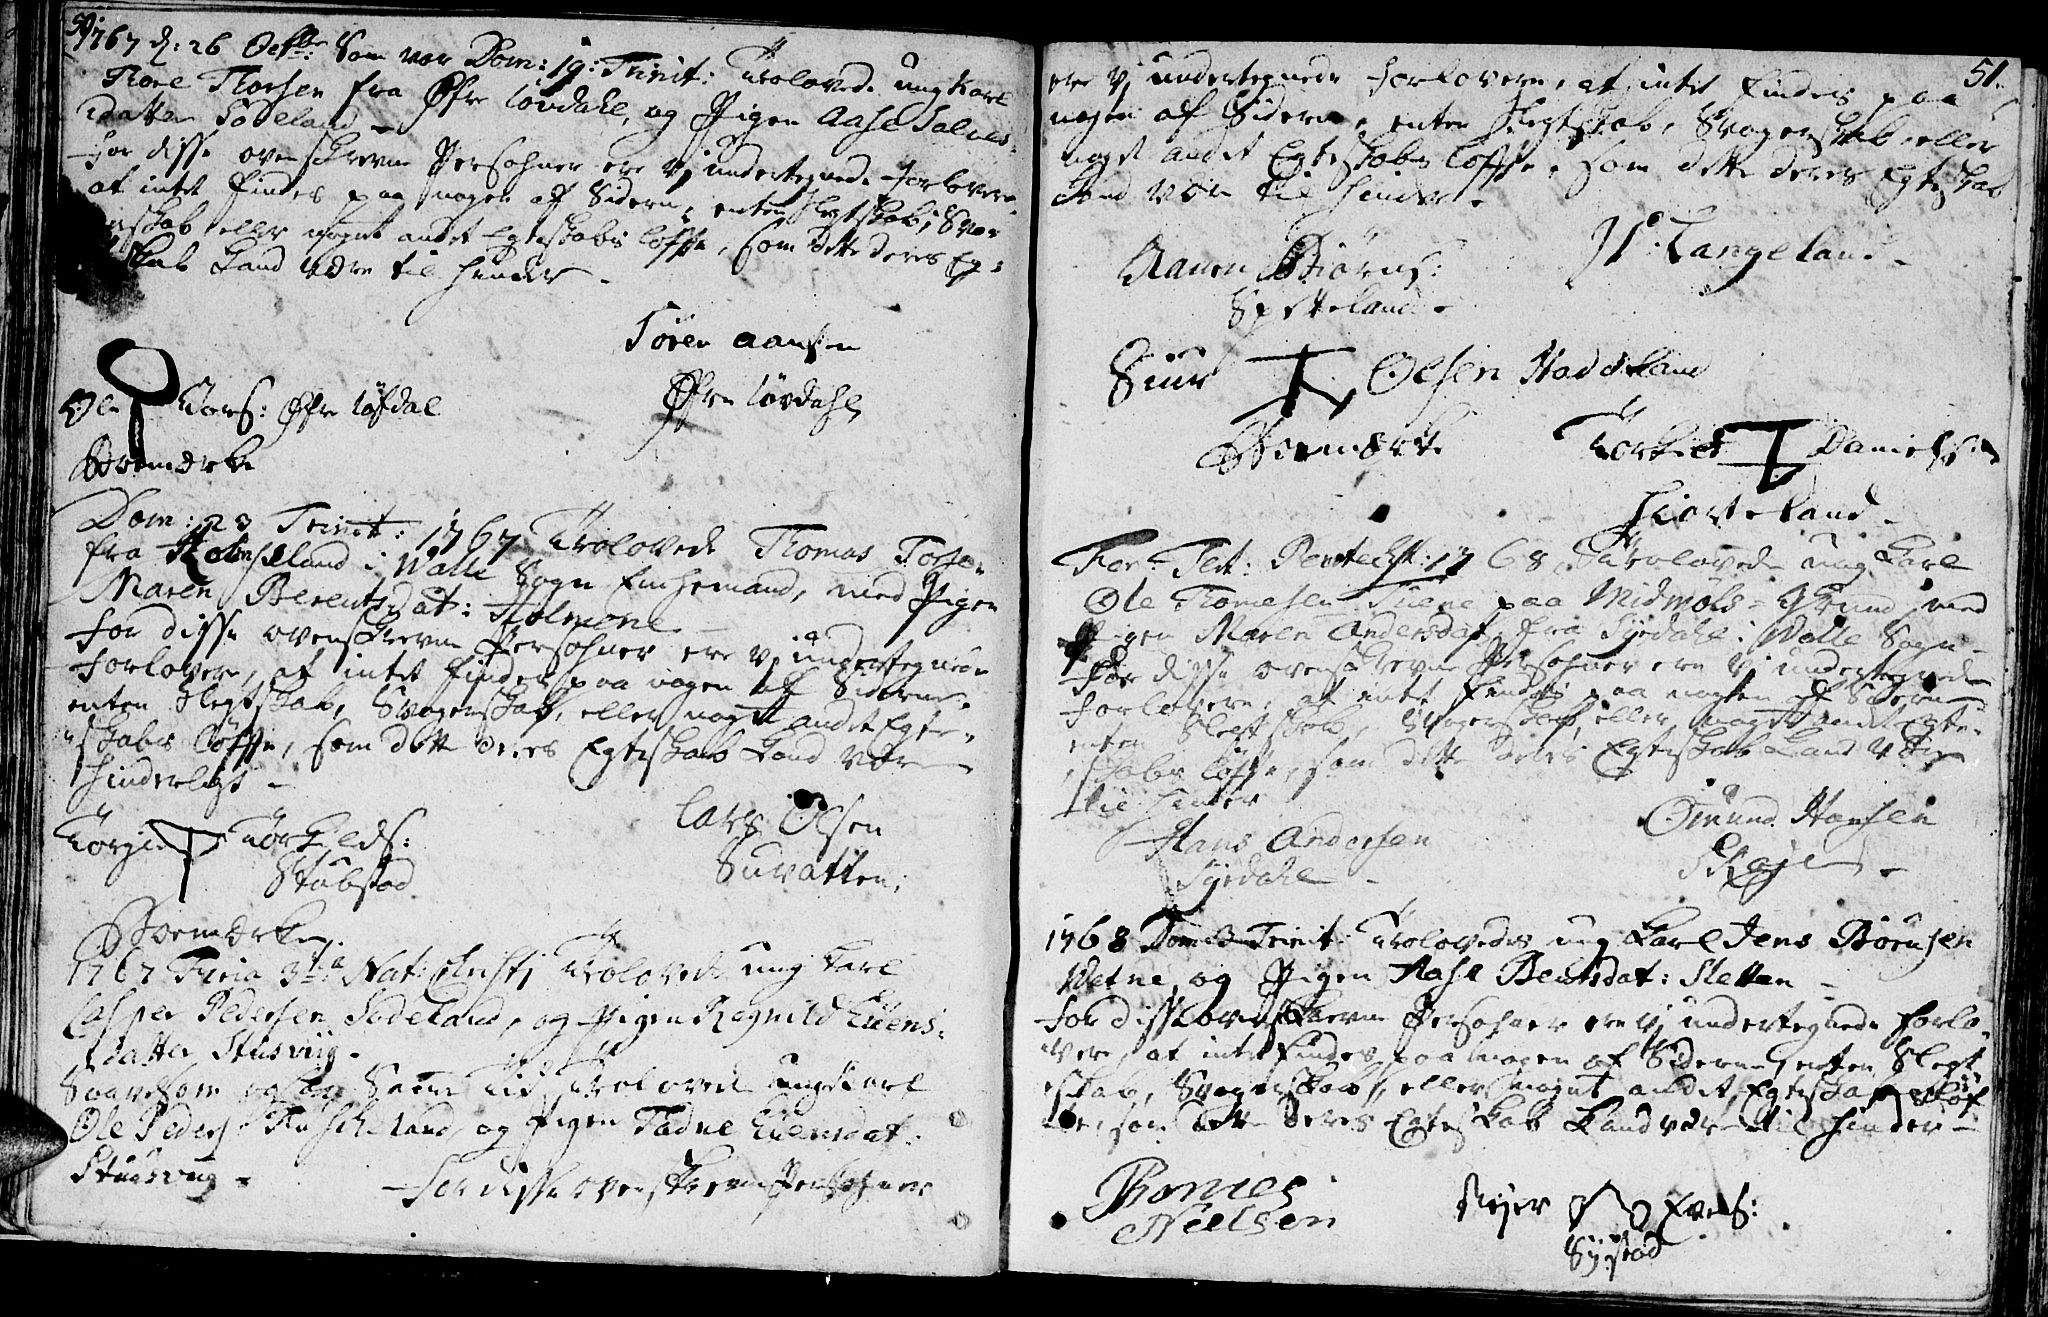 50.
1767 d: 26 Octbr: Som var Dom: 19: Trinit: Trolovede ung Karl
Tore Torsen fra Øfre Løvdahl, og Pigen Aase Salves-
datter Sodeland -
For disse ovenskrevne Persohner ere vj undertegnede Forlovere
at intet findes paa nogen af Siderne, enten Slegtskab, Svo-
gerskab eller noget andet Egteskabs løfte, som dette deres Eg-
teskab kand være til hinder -
Tören Aansen
Øfre Løvdahl
Ole Tors: Øfre Løfdal
Boemærke
Dom: 23 Trinit: 1767 Trolovede Thomas Torse.
fra i Walle Sogn Enchemand, med Pigen
Maren Berentsdat: Holmene -
For disse ovenskrevne Persohner ere vj undertegnede
Forlovere, at intet findes paa nogen af Siderne
enten Slegtskab, Svogerskab, eller noget andet Egte-
skabs løfte, som dette deres Egteskab kand være
hinderligt -
Lars Olsen
Torgie Törkelds:
Stubstad
Boemærke
1767 Feria 3tia Nat: Christi Trolovede ung Karl
Casper Pedersen Sodeland, og Pigen Ragnild Eilens-
datter Stusviig.
Saavelsom og paa Samme Tid Trolovede ung Karl
Ole Peders: og Pigen Tadne Eilensdat:
Stusviig -
For disse ovenskrevne Persohner
51.
ere vj undertegnede Forlovere, at intet findes paa
nogen af Siderne, enten Slegtskab, Svogerskab, eller
noget andet Egteskabs løfte, som dette deres Egteskab
kand være til hinder.
Aanen Biörns:
Spetteland -
N: Langeland -
Siur Olsen Haddeland
Boemærke
Torkiel Daniels:
Hiorteland -
Fer: Pentechst: 1768, Trolovede ung Karl
Ole Tomesen Tuene paa Midmöls-Grund med
Pigen Maren Andersdat: fra Syrdahl i Walle Sogn -
For disse ovenskrevne Persohner ere vj undertegnede
Forlovere, at intet findes paa nogen af Siderne
enten Slegtskab, Svogerskab, eller noget andet Egte-
skabs løfte, som dette deres Egteskab kand være
til hinder
Hans Andersen
Syrdahl -
Omund Hansen
Skoje -
1768 Dom: 3 Trinit: Trolovedes ung Karl Jens Börusen
Wetne, og Pigen Aase Bentsdat: Sletten -
For disse ovenskrevne Persohner ere vj undertegnede Forlo-
vere, at intet findes paa nogen af Siderne, enten Slegt-
skab, Svogerskab, eller noget andet Egteskabs løf-
te, som dette deres Egteskab kand være til hinder -
Tomes
Nielsen
Reier Evens:
Systad